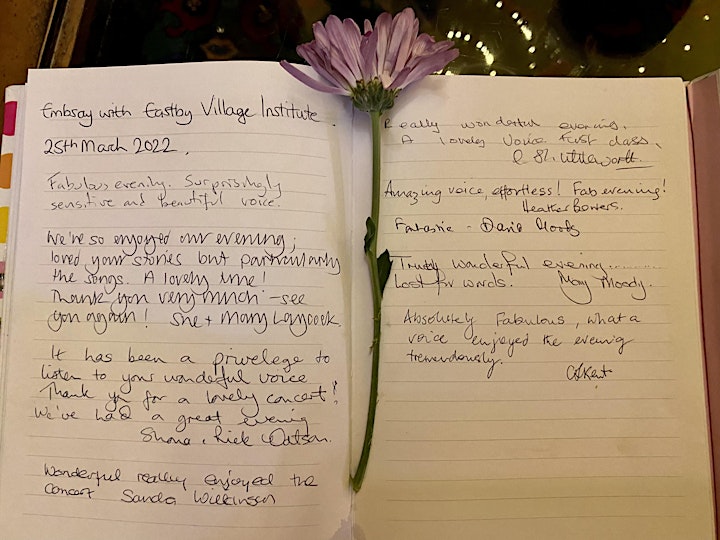 Embsay with Eastby Village Institute.
25th March 2022.
Fabulous evenily. Surprisingly
sensitive and beautiful voice.
We've so enjoyed our evening,
loved your stories but particularly
the songs. A lovely time!
Thank you very much - see
you again! Sue + Mary Laycock.
It has been a privelege to
listen to your wonderful voice
Thank you for a lovely concert!
We've had a great evening
Shona + Rick Watson.
Wonderful really enjoyed the
concert Sandra Wilkinson
Really wonderful evening.
A lovely Voice First class.
Amazing voice, effortless! Fab evening!
Heather Bowers.
Fantastic -
Truly wonderful evening.........
Lost for words. Mary Moody.
Absolutely Fabulous, what a
voice enjoyed the evening
tremendously.
Kent